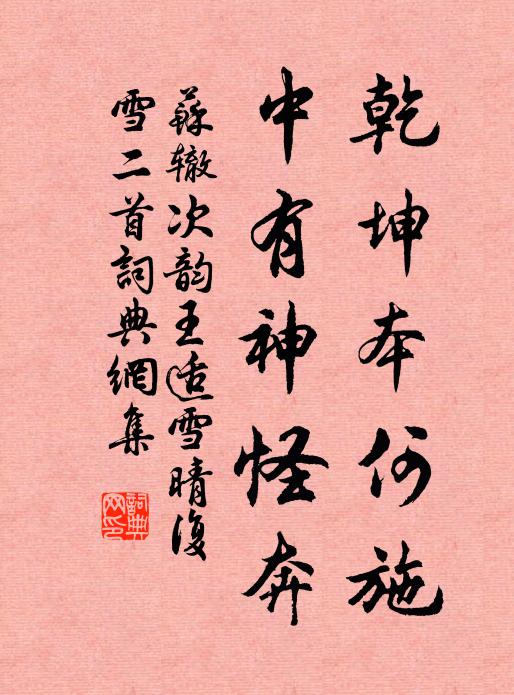 乾坤本何施
中有神怪奔
蘇辙次韵王适雪晴復
雪二首詞典網集
詞典
网印